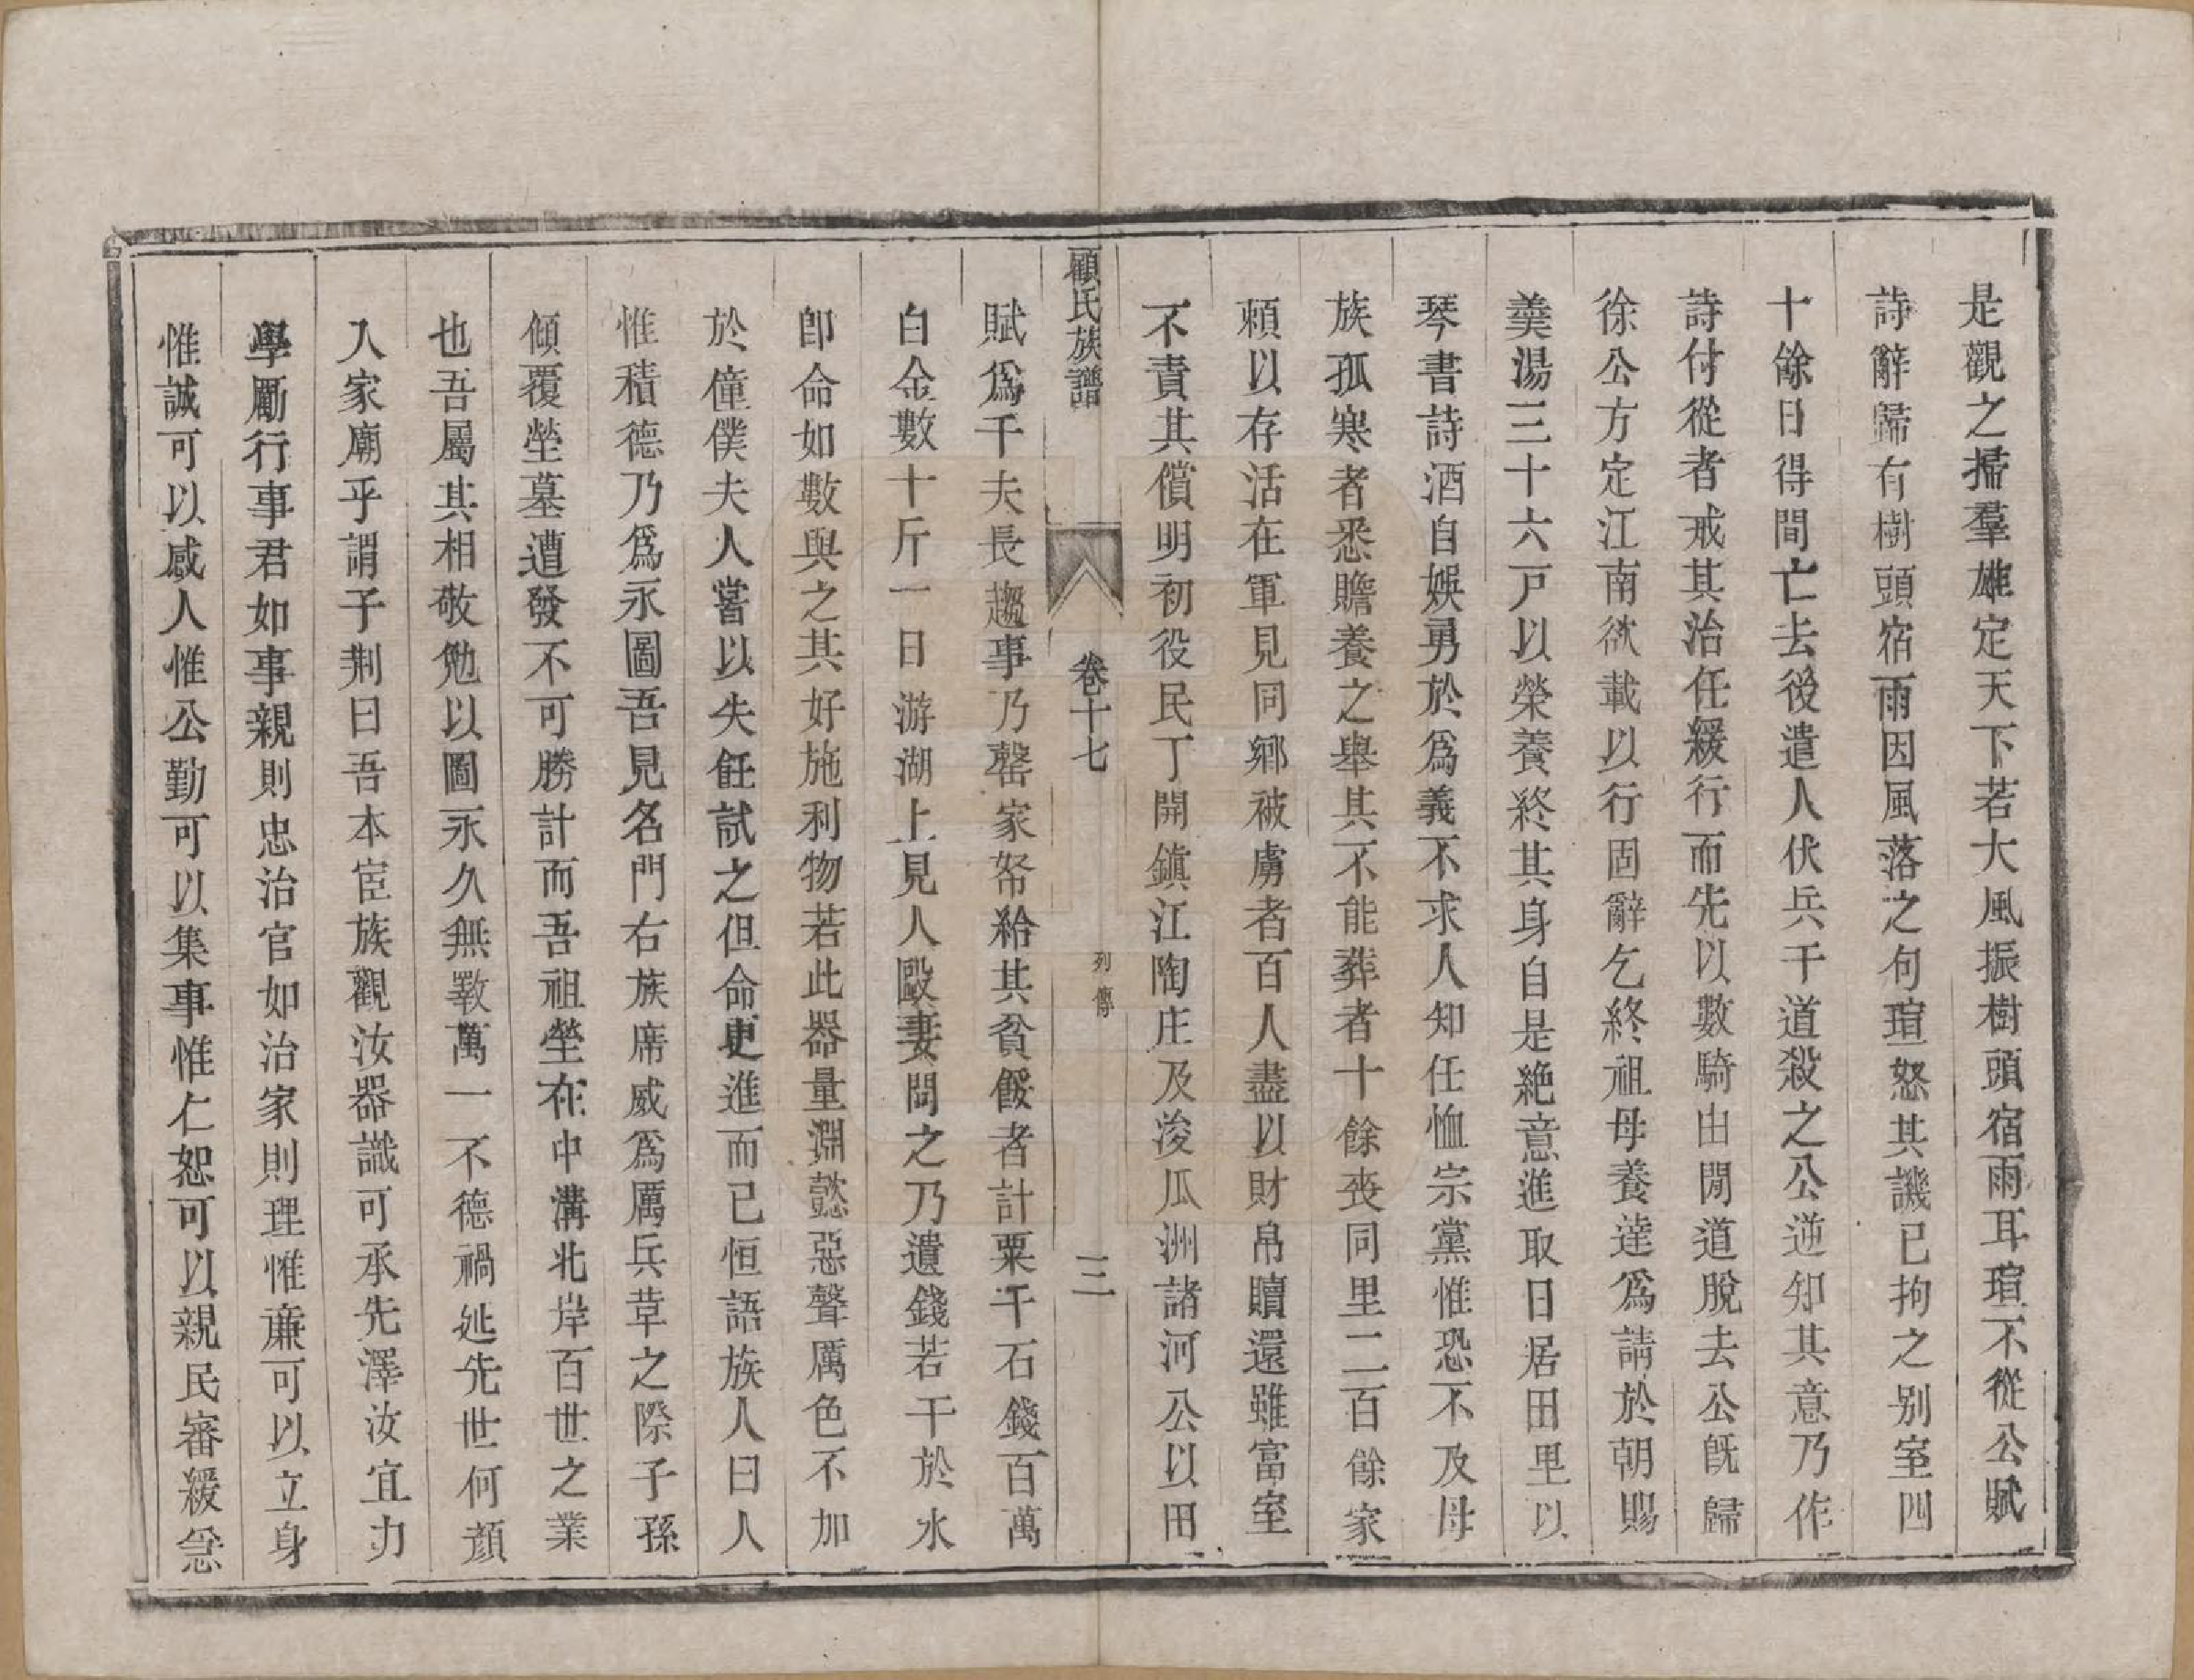 是觀之掃羣雄定天下若大風振樹頭宿雨耳瑄不從公賦
詩辭歸有樹頭宿雨因風落之句瑄怒其譏已拘之别室四
十餘日得間亡去後遣人伏兵于道殺之公逆知其意乃作
詩付從者戒其治任緩行而先以數騎由閒道脫去公旣歸
徐公方定江南欲載以行固辭乞終祖母養達爲請於朝賜
羮湯三十六戸以榮養終其身自是絶意進取日居田里以
琴書詩酒自娛勇於爲義不求人知任恤宗黨惟恐不及母
族孤寒者悉贍養之舉其不能葬者十餘喪同里二百餘家
頼以存活在軍見同鄉被虜者百人盡以財帛贖還雖富室
不責其償明初役民丁開鎮江陶庄及浚瓜洲諸河公以田
顧氏族譜 卷十七 列傳 三
賦爲千夫長趨事乃罄家帑給其貧餒者計粟千石錢百萬
白金數十斤一日游湖上見人毆妻問之乃遺錢若干於水
卽命如數與之其好施利物若此器量淵懿惡聲厲色不加
於僮僕夫人嘗以失飪試之但命更進而已恒語族人曰人
惟積德乃爲永圖吾見名門右族席威爲厲兵革之際子孫
傾覆塋墓遭發不可勝計而吾祖塋在中溝北岸百世之業
也吾屬其相敬勉以圖永久無斁萬一不德禍延先世何顏
入家廟乎謂子荆曰吾本宦族觀汝器識可承先澤汝宜力
學勵行事君如事親則忠治官如治家則理惟廉可以立身
惟誠可以感人惟公勤可以集事惟仁恕可以親民審緩急